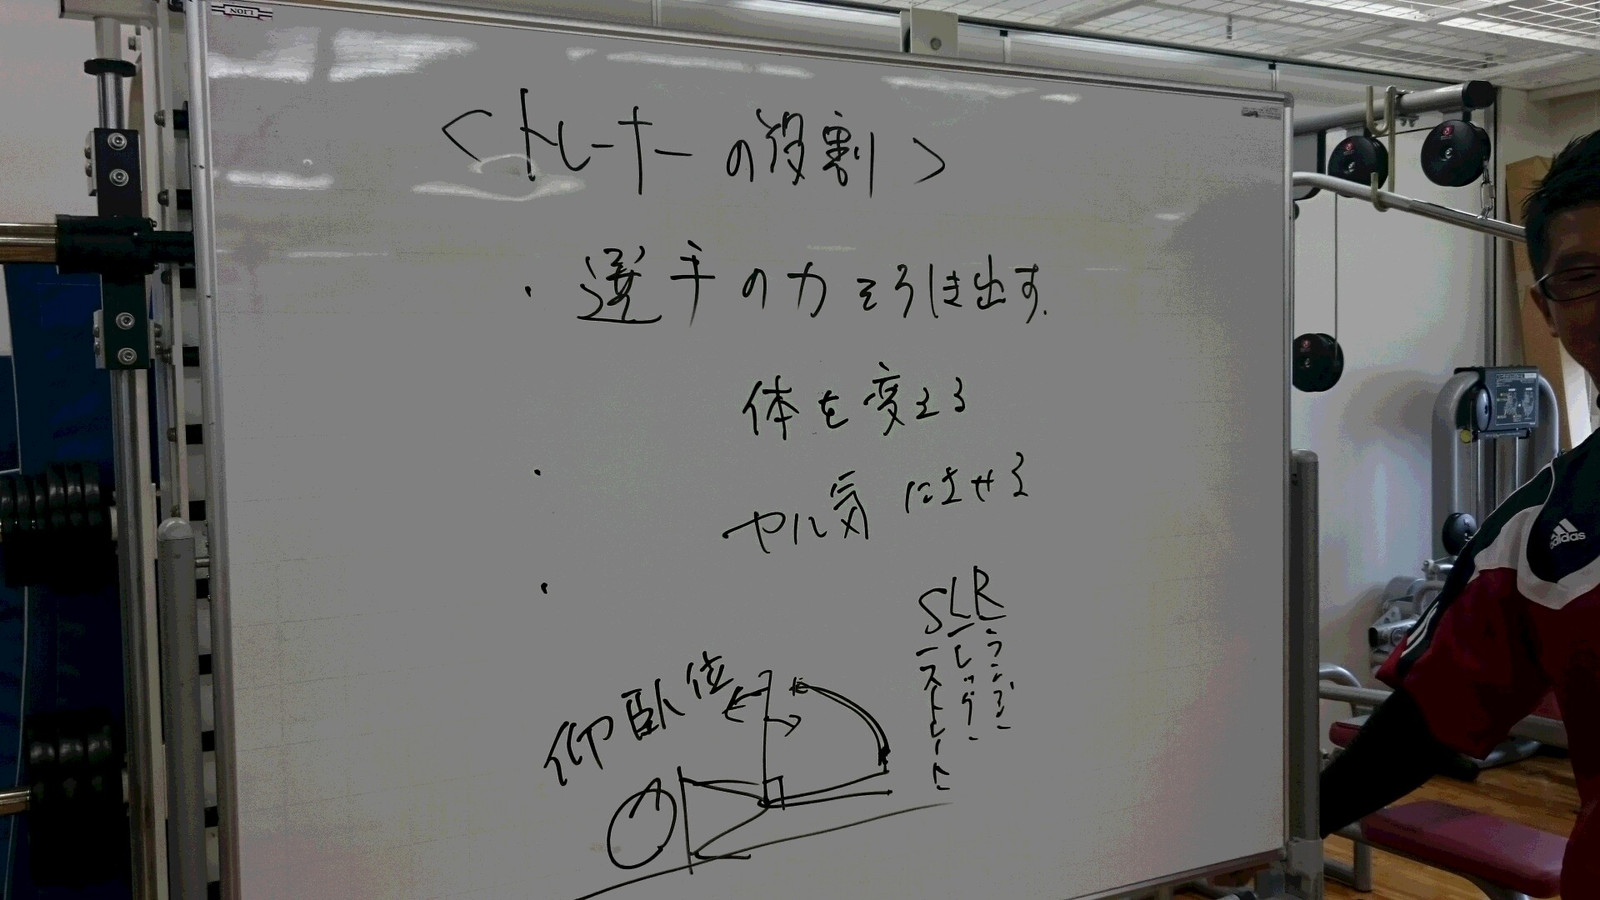 LION
<トレーナーの役割>
・選手の力を引き出す.
体を変える
・
ヤル気にさせる
・
SLR
ストレート
レッグ
ランジ
仰臥位
adidas